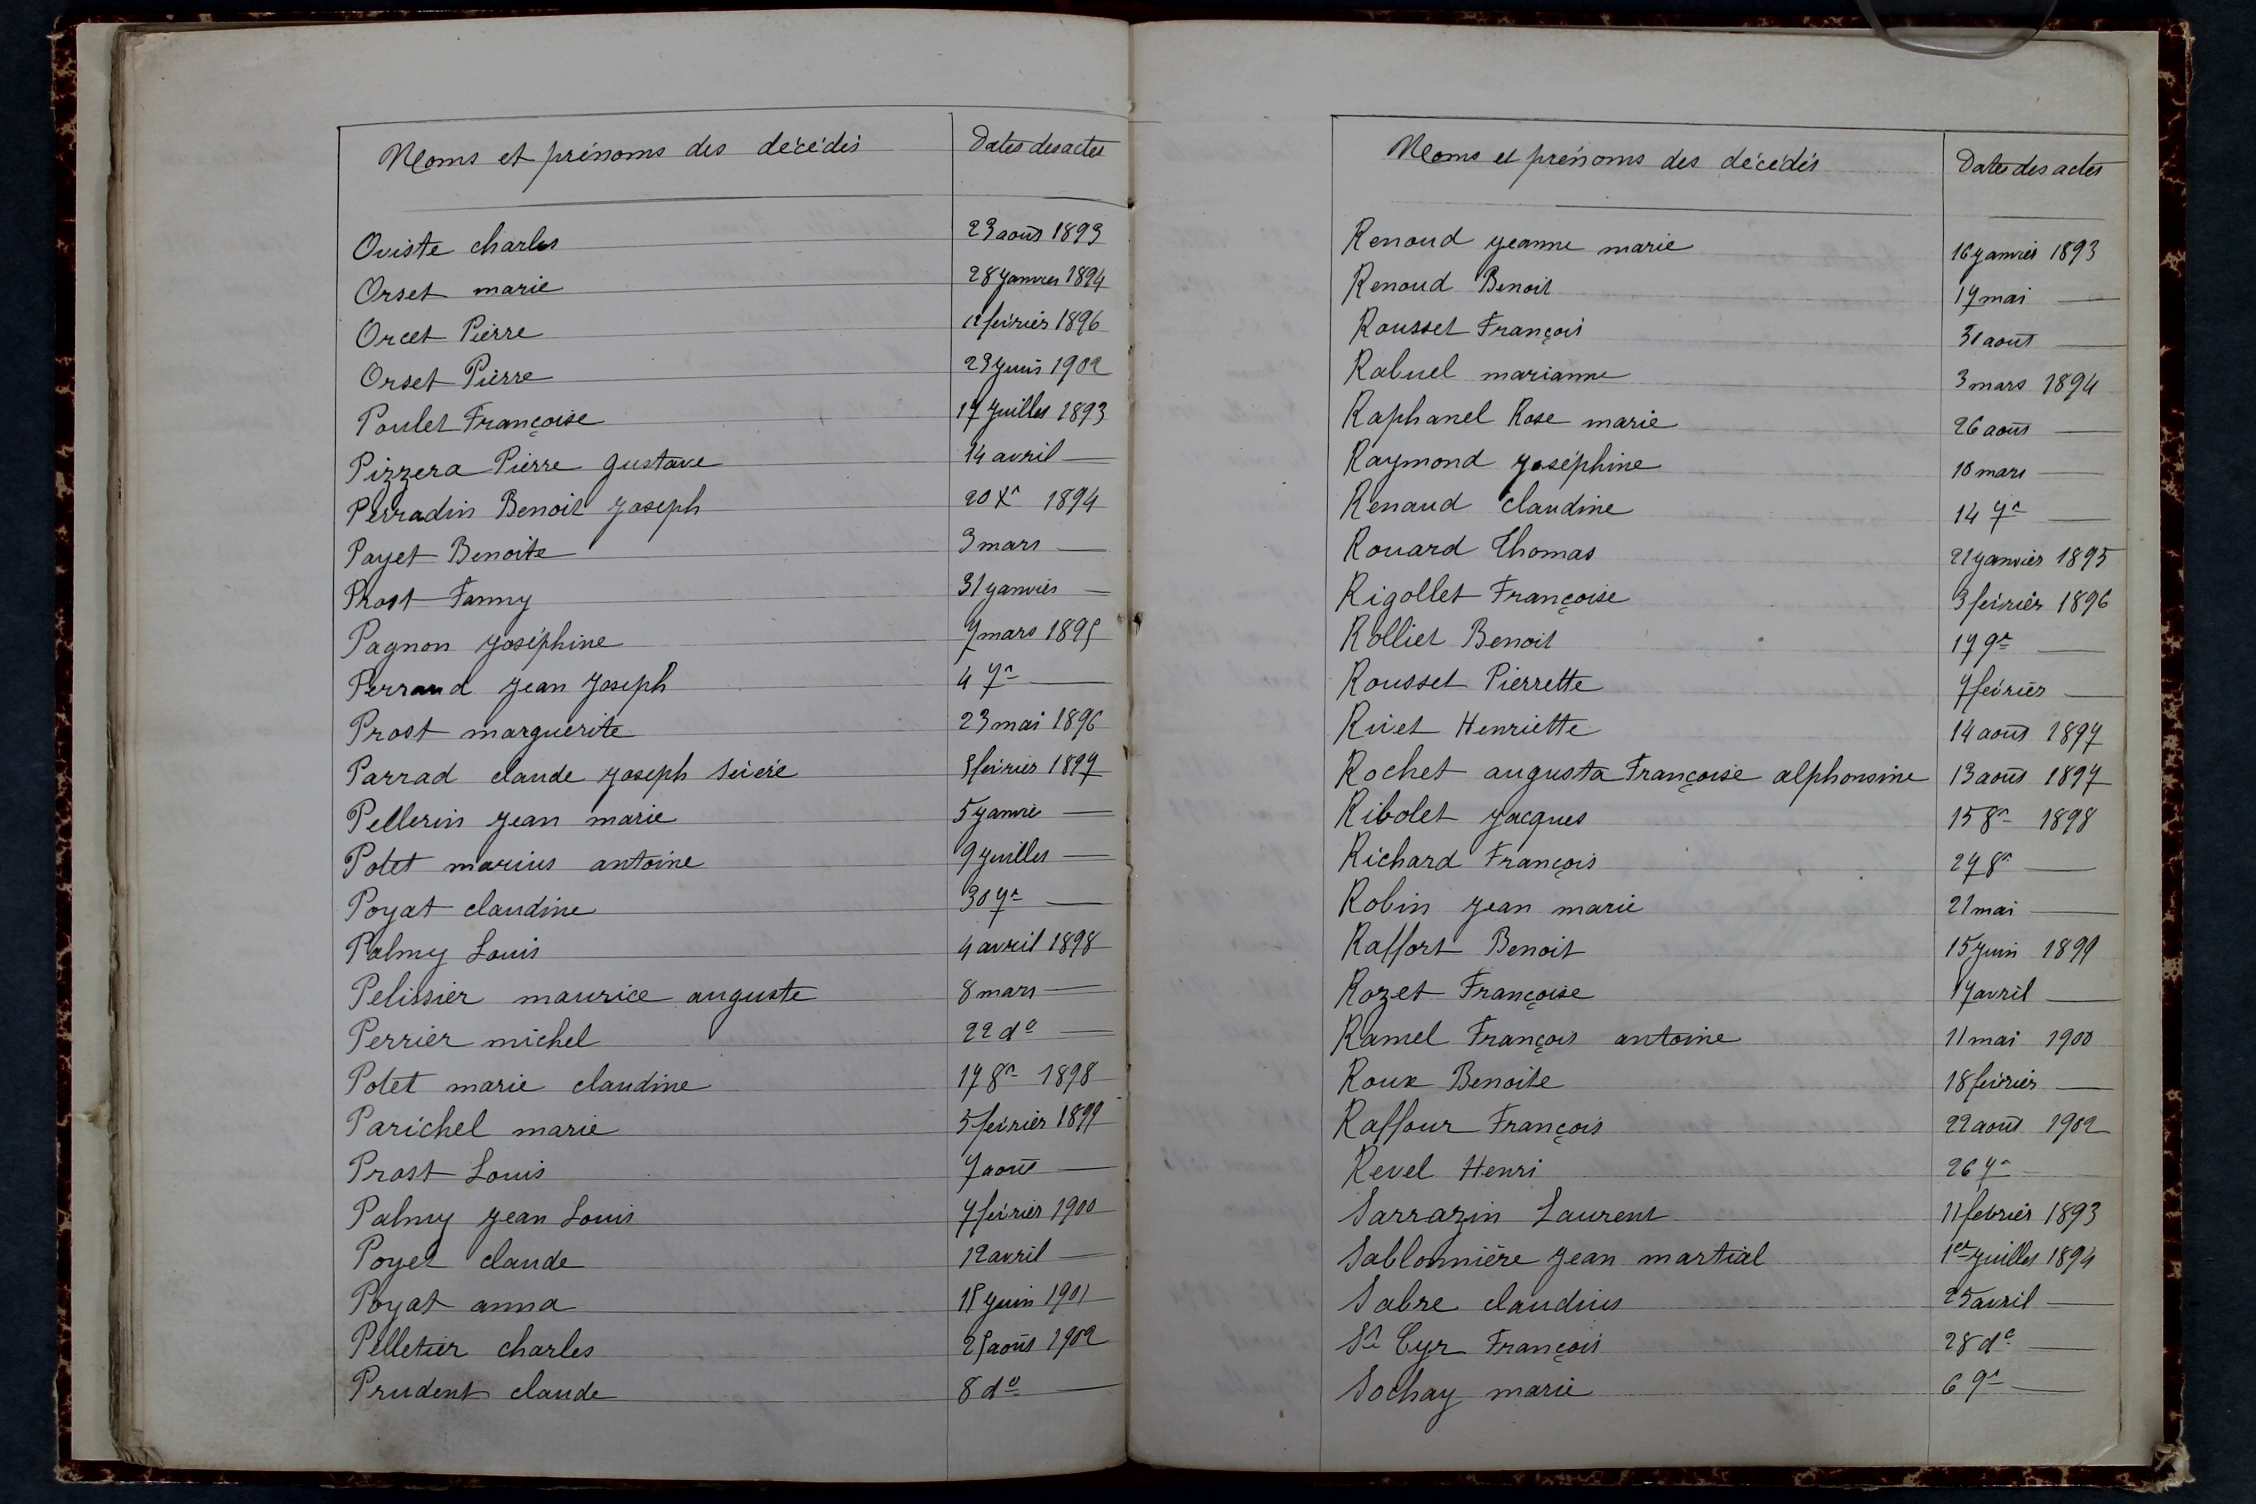 Noms et prénoms des décédés Dates des actes
Oviste charles 23 août 1893
Orset marie 28 janvier 1894
Orcet Pierre 12 février 1896
Orset Pierre 23 juin 1902
Poulet Françoise 17 juillet 1893
Pizzera Pierre gustave 14 avril —
Perradin Benoit joseph 20 Xr 1894
Payet Benoite 3 mars —
Prost Fanny 31 janvier —
Pagnon joséphine 7 mars 1895
Perraud jean joseph 4 7r —
Prost marguerite 23 mai 1896
Parrad claude joseph 3 février 1897
Pellerin jean marie 5 janvie —
Potet marius antoine 9 juillet —
Poyat claudine 30 7r —
Palmy Louis 4 avril 1898
Pelissier maurice auguste 8 mars —
Perrier michel 22 do —
Potet marie claudine 17 8r 1898
Parichel marie 5 février 1899
Prost Louis 7 août —
Palmy jean Louis 7 février 1900
Poyet claude 12 avril —
Poyat anna 15 juin 1901
Pelletier charles 25 août 1902
Prudent claude 8 do —
Noms et prénoms des décédés Dates des actes
Renoud jeanne marie 16 janvier 1893
Renoud Benoit 17 mai —
Rousset François 31 août —
Rabuel marianne 3 mars 1894
Raphanel Rose marie 26 août —
Raymond joséphine 10 mars —
Renaud claudine 14 7r —
Rouard Thomas 21 janvier 1895
Rigollet Françoise 3 février 1896
Rolliet Benoit 17 9r —
Rousset Pierrette 7 février —
Rivet Henriette 14 août 1897
Rochet augusta Françoise alphonsine 13 août 1897
Ribolet jacques 15 8r 1898
Richard François 27 8r —
Robin jean marie 21 mai —
Raffort Benoit 15 juin 1899
Rozet Françoise 17 avril —
Ramel François antoine 11 mai 1900
Roux Benoite 18 février —
Raffour François 22 août 1902
Revel Henri 26 7r —
Sarrazin Laurent 11 febrier 1893
Sablonnière jean martial 1er juillet 1894
Sabre claudius 25 avril —
St Cyr François 28 do —
Sochay marie 6 9r —